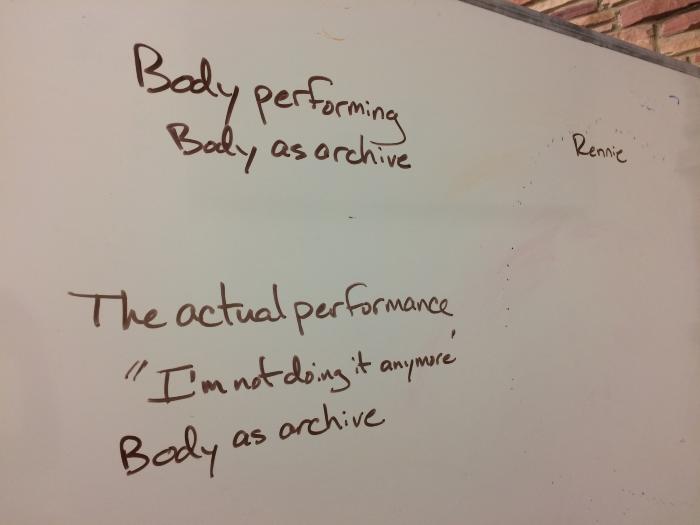 Body performing
Body as archive
Rennie
The actual performance
"I'm not doing it anymore'
Body as archive